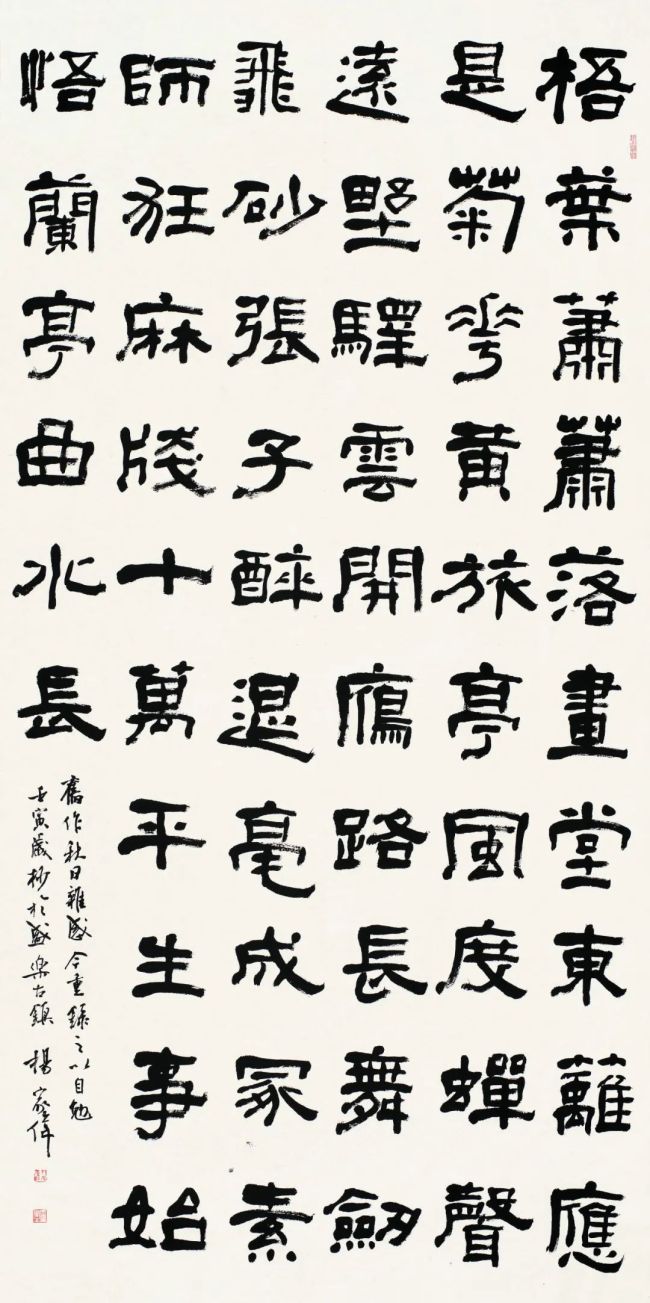 梧葉蕭蕭落畫堂東蘺應
是菊華黃旅亭風度蟬聲
遠墅驛雲開鴈路長舞劒
飛砂張子醉退毫成冢素
師狂麻牋十萬平生事始
悟蘭亭曲水長
舊作秋日雜感今重錄之以自勉
壬寅歲杪於盛樂古鎮 楊家偉